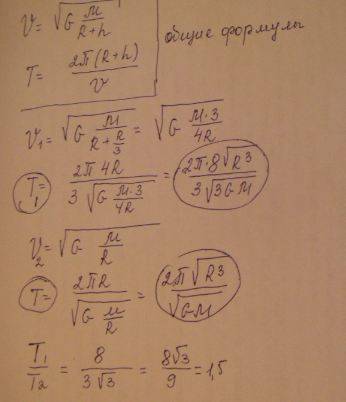 V = √(G M/(R+h))
общие формулы
T = 2π(R+h)/V
V₁ = √(G M/(R + R/3)) = √(G M·3/4R)
T₁ = 2π4R/(3√(G M·3/4R)) = 2π·8√R³/(3√3GM)
V₂ = √(G M/R)
T = 2πR/√(G M/R) = 2π√R³/√GM
T₁/T₂ = 8/(3√3) = 8√3/9 = 1,5